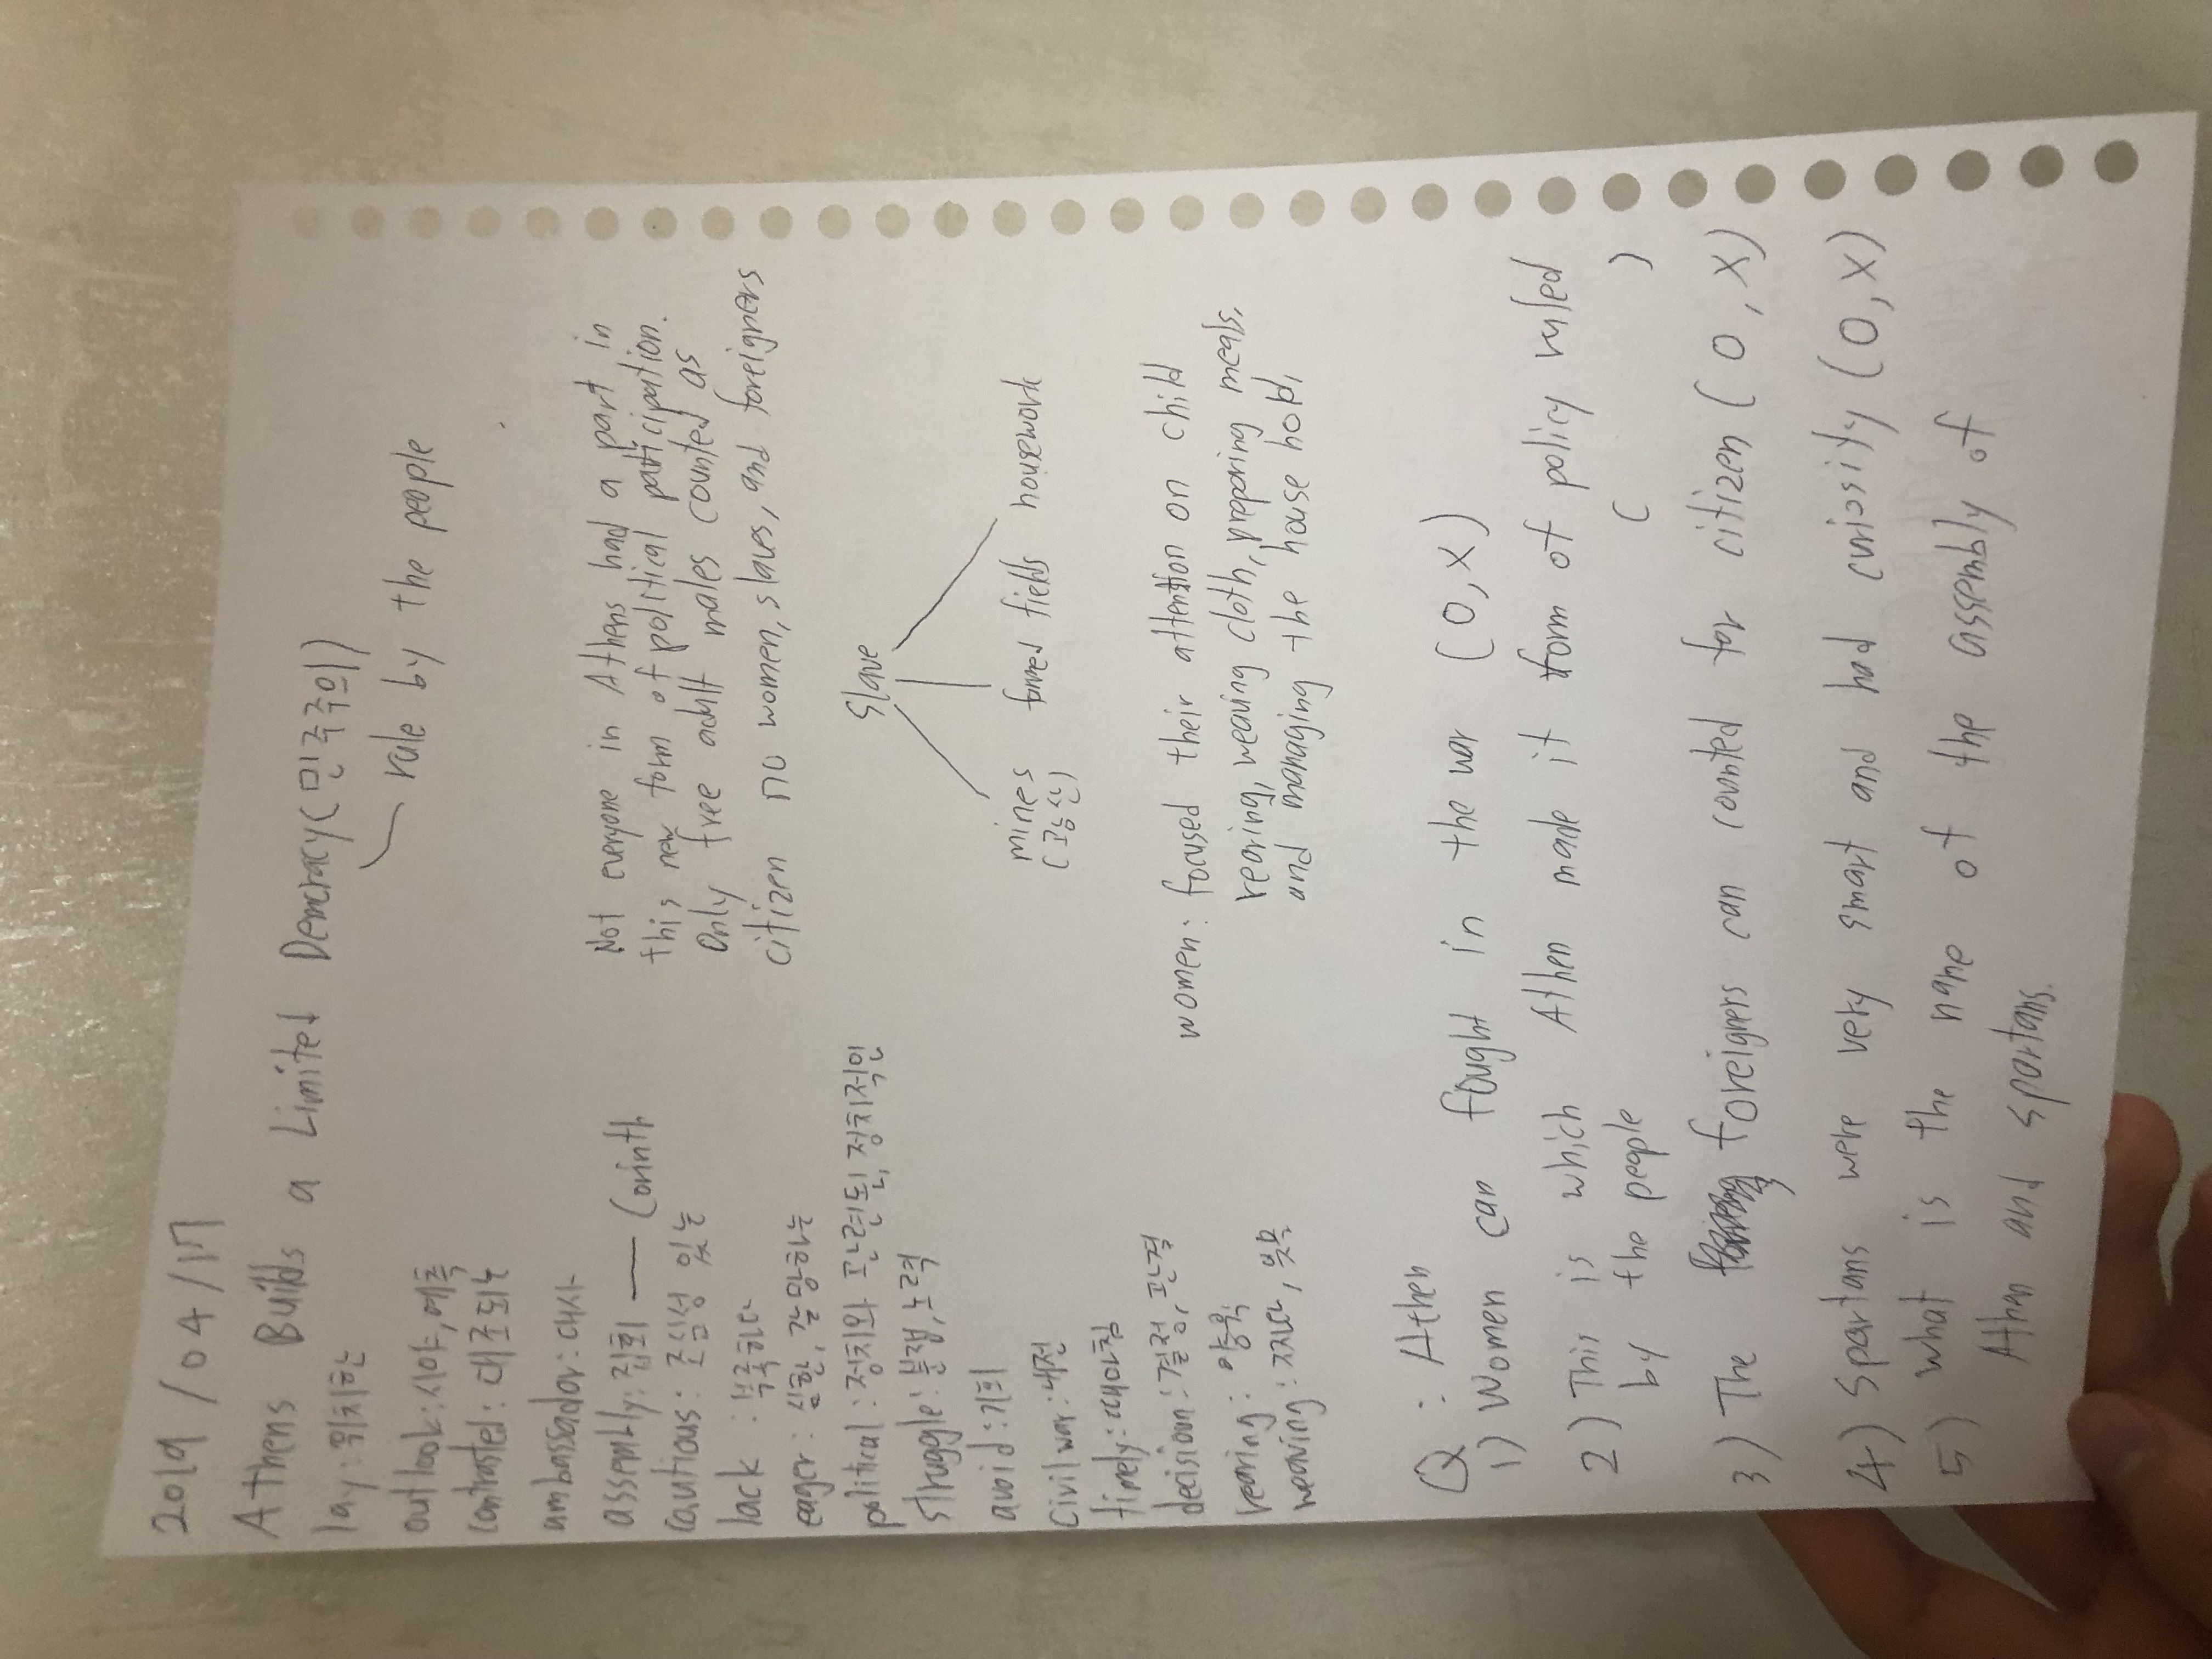 2019 / 04 / 17
Athens Builds a Limited Democracy (민주주의)
rule by the people
lay : 위치한
outlook : 시야, 예측
contrasted : 대조되는
ambassador : 대사
assembly : 집회 — Corinth
cautious : 조심성 있는
lack : 부족하다
eager : 심한, 갈망하는
political : 정치와 관련된, 정치적인
struggle : 분쟁, 노력
avoid : 기회
Civil war : 내전
timely : 때마침
decision : 결정, 판결
rearing : 양육
weaving :
Not everyone in Athens had a part in
this new form of political participation.
Only free adult males counted as
citizen no women, slaves, and foreigners
slave
mines farmed fields housework
(광산)
women : focused their attention on child
rearing, weaving cloth, preparing meals,
and managing the house hold,
Q : Athen
1) Women can fought in the war (O, X)
2) This is which Athen made it form of policy ruled
by the people ( )
3) The foreigners can counted for citizen (O, X)
4) Spartans were very smart and had curiosity (O, X)
5) what is the name of the assembly of
Athen and Spartans.